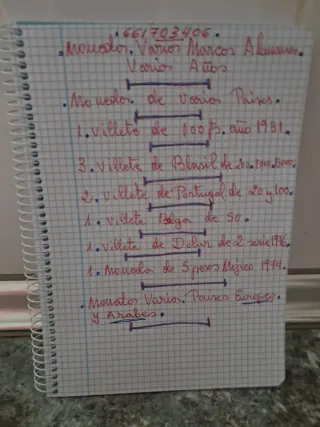 .661703406.
.Monedas. Varios Marcos Alemanes.
Varios Años
.Monedas. de varios Paises.
1. villete de 100 Ps. año 1931.
3. Villete de Blasil de 200.1000.5000.
2. villete de Portugal de 20 y 100.
1. villete Belga de 50.
1. villete de Dolar de 2 serie 1976.
1. Moneda de 5 pesos Mejico 1974.
.Monedas Varios. Paises Europeos.
y Arabes.